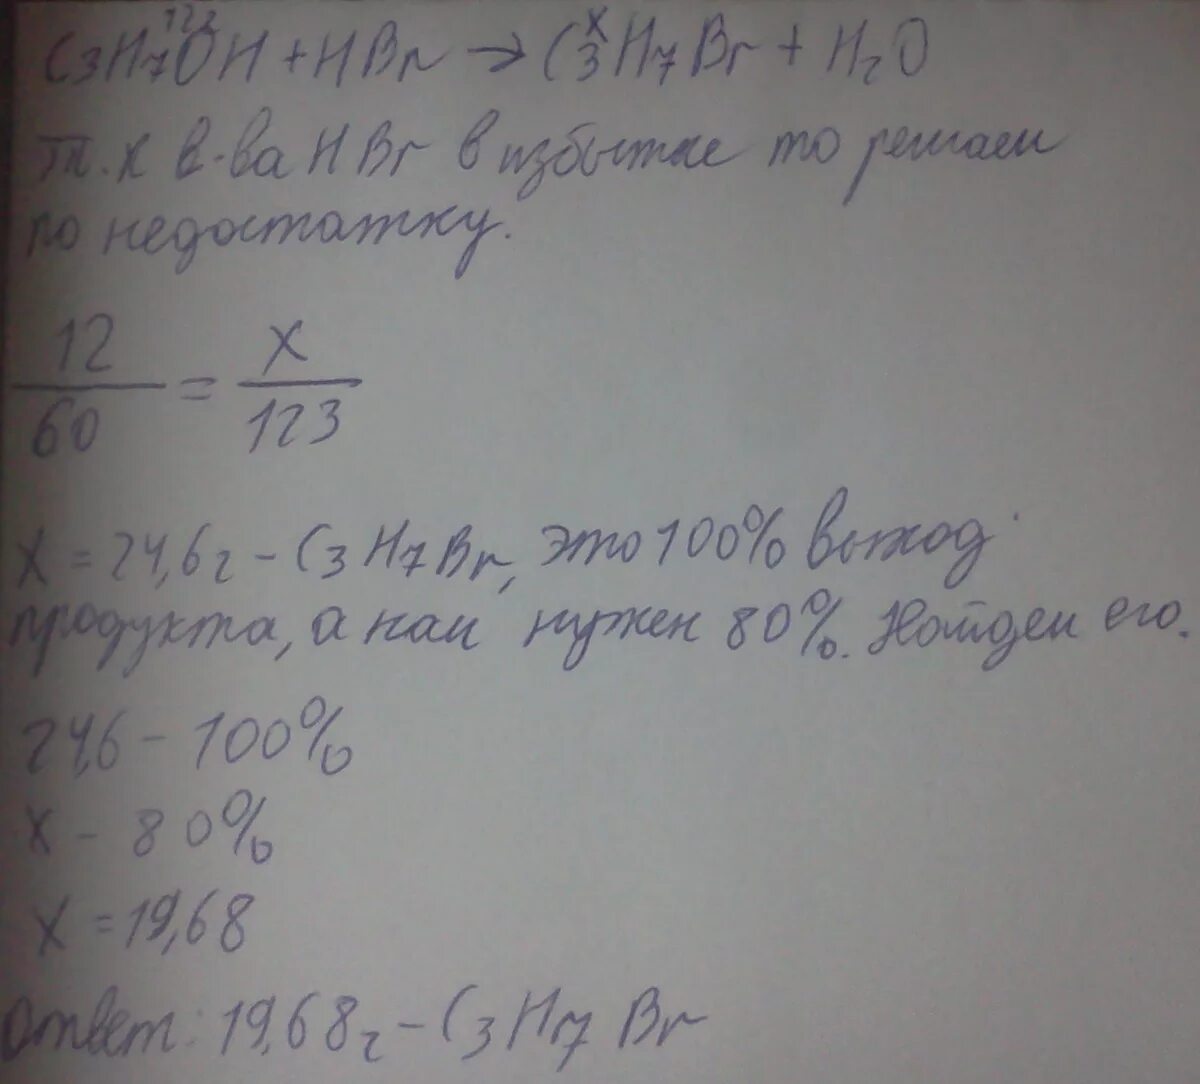 12г x
C₃H₇OH + HBr → C₃H₇Br + H₂O
Т.к в-ва HBr в избытке то решаем
по недостатку.
12/60 = x/123
x = 24,6г - C₃H₇Br, это 100% выход
продукта, а нам нужен 80%. Найдем его.
24,6 - 100%
x - 80%
x = 19,68
Ответ: 19,68г - C₃H₇Br